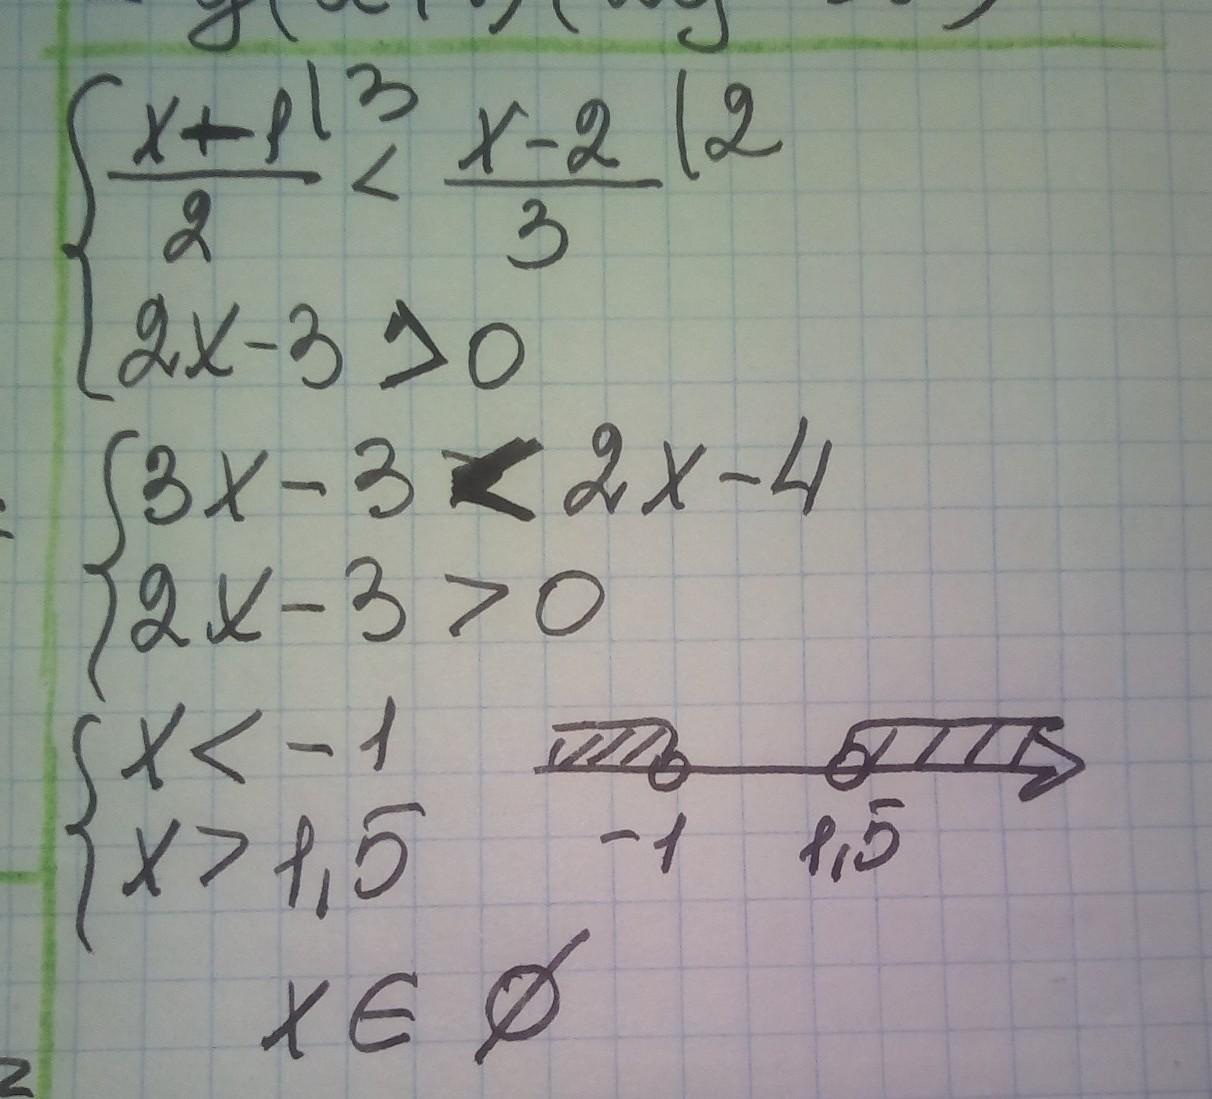 x+1|3 / 2 < x-2|2 / 3
2x-3>0
3x-3<2x-4
2x-3>0
x<-1
x>1,5
-1 1,5
x∈ ∅